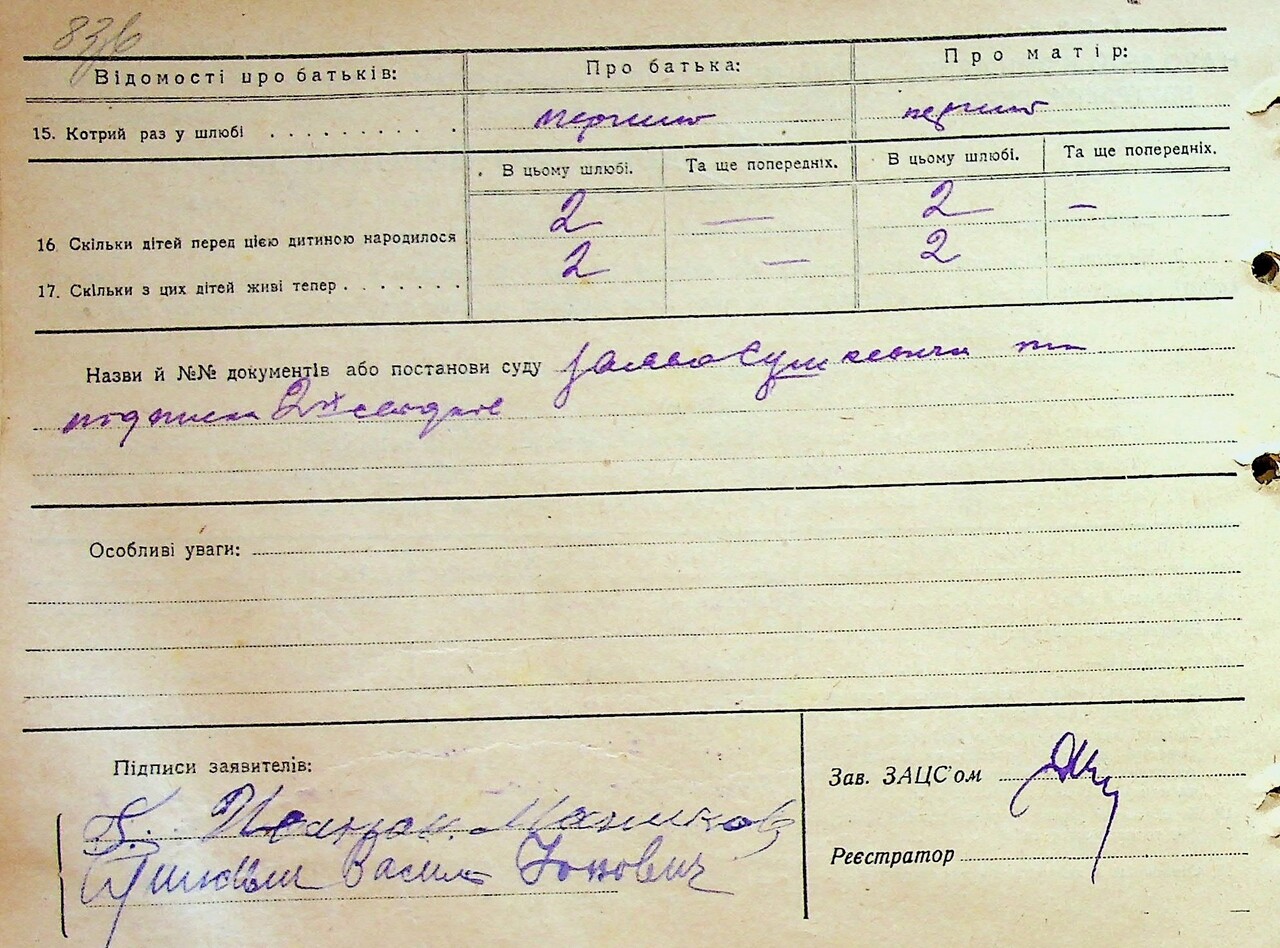 836
Відомості про батьків: Про батька: Про матір:
15. Котрий раз у шлюбі . . . . . . . . . . перший перший
В цьому шлюбі. Та ще попередніх. В цьому шлюбі. Та ще попередніх.
16. Скільки дітей перед цією дитиною народилося 2 — 2 —
17. Скільки з цих дітей живі тепер . . . . . . . 2 — 2
Назви й №№ документів або постанови суду та
подписка 2х
Особливі уваги:
Підписи заявителів:
Зав. ЗАЦС'ом
Василь Іонович
Реєстратор